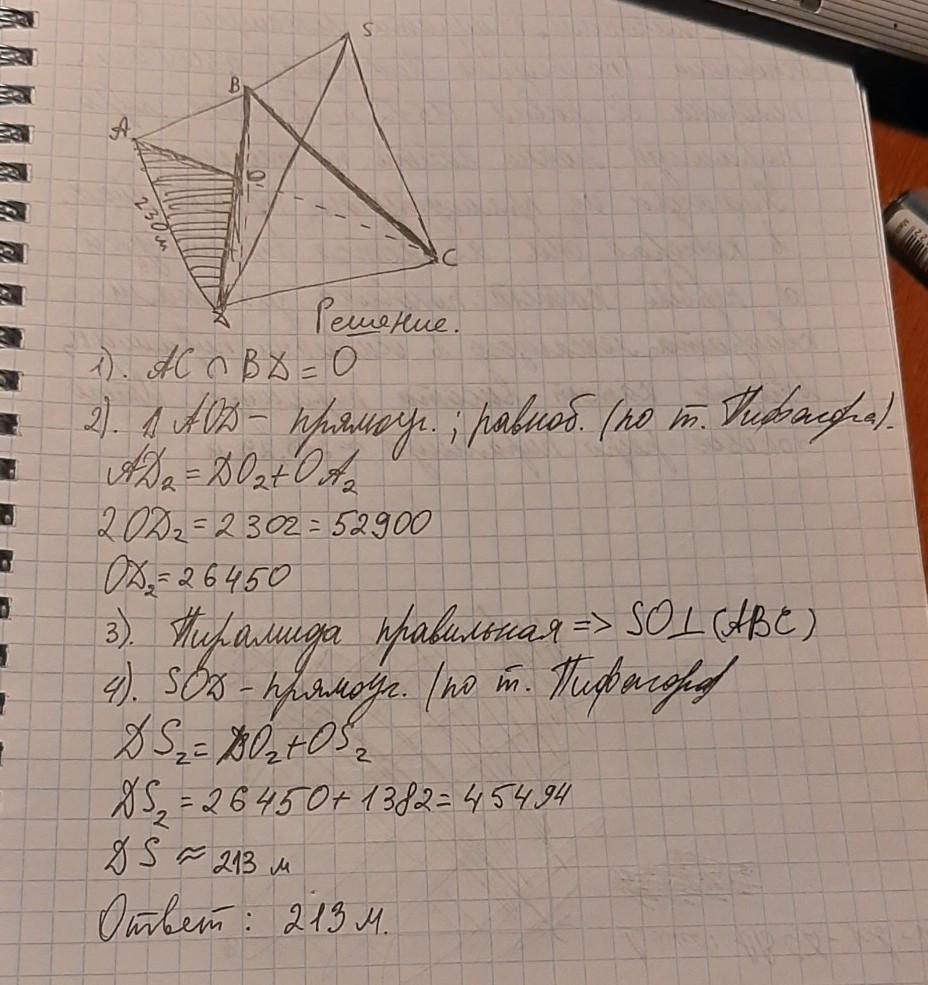 S
B
A
O
230м
C
D
Решение.
1). AC ∩ BD = O
2). Δ AOD - прямоуг.; равноб. (по т. Пифагора).
AD₂ = DO₂ + OA₂
2OD₂ = 2302 = 52900
OD₂ = 26450
3). Пирамида правильная => SO⊥(ABC)
4). SOD - прямоуг. (по т. Пифагора
DS₂ = DO₂ + OS₂
DS₂ = 26450 + 1382 = 45494
DS ≈ 213 м
Ответ: 213 м.